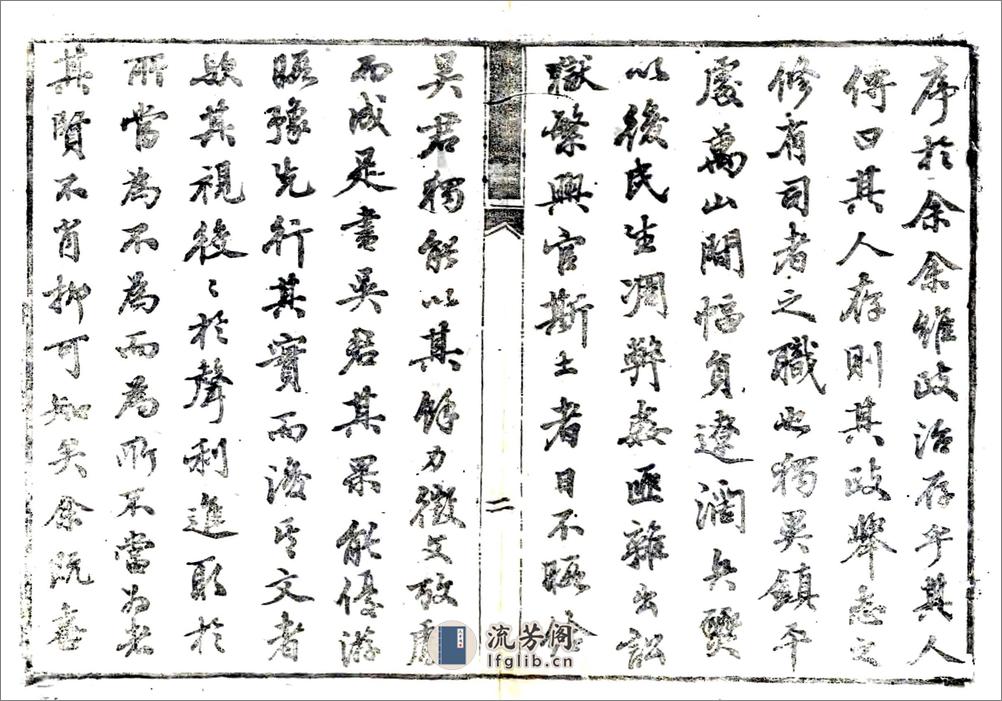 序於余余維政治存乎其人
傳曰其人存則其政舉志之
修有司者之職也獨異鎮平
處萬山間幅員遼濶兵燹
以後民生凋弊姦匪雜出訟
獄繁興官斯土者日不暇給
二
吳君獨能以其餘力徵文攷獻
而成是書吳君其果能優游
暇豫先行其實而後其文者
歟其視後〻於聲利進取於
所當為不為而為所不當為者
其賢不肖抑可知矣余既喜
流芳阁
lfglib.cn